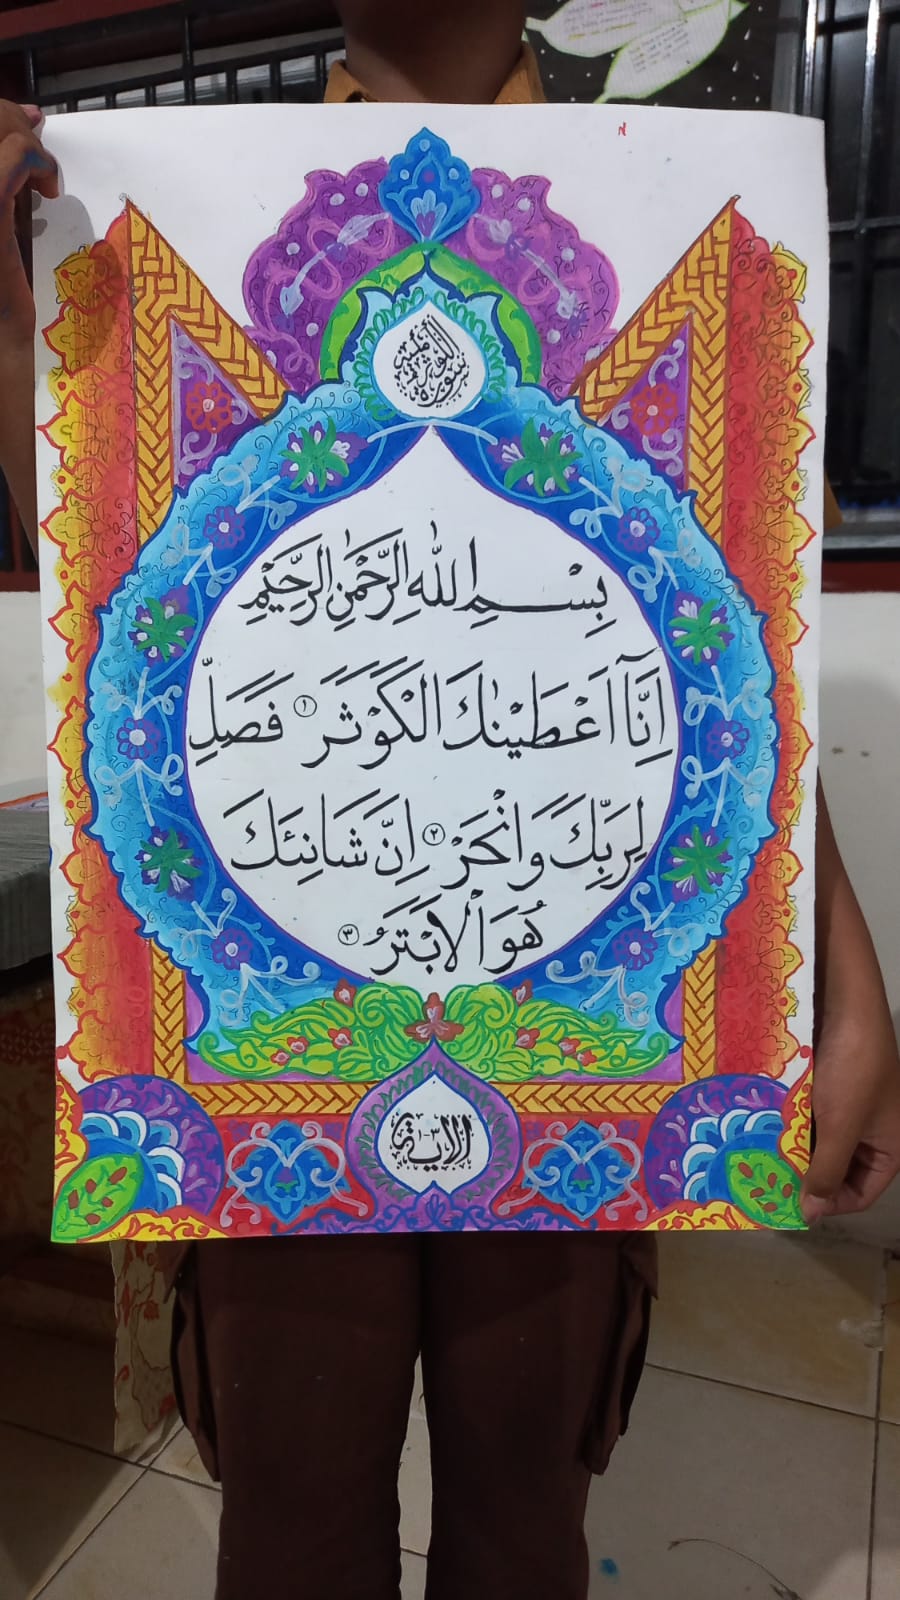 سورة الكوثر
بِسْمِ اللهِ الرَّحْمٰنِ الرَّحِيْمِ
اِنَّآ اَعْطَيْنٰكَ الْكَوْثَرَ ١ فَصَلِّ
لِرَبِّكَ وَانْحَرْ ٢ اِنَّ شَانِئَكَ
هُوَ الْاَبْتَرُ ٣
الاية ١-٣